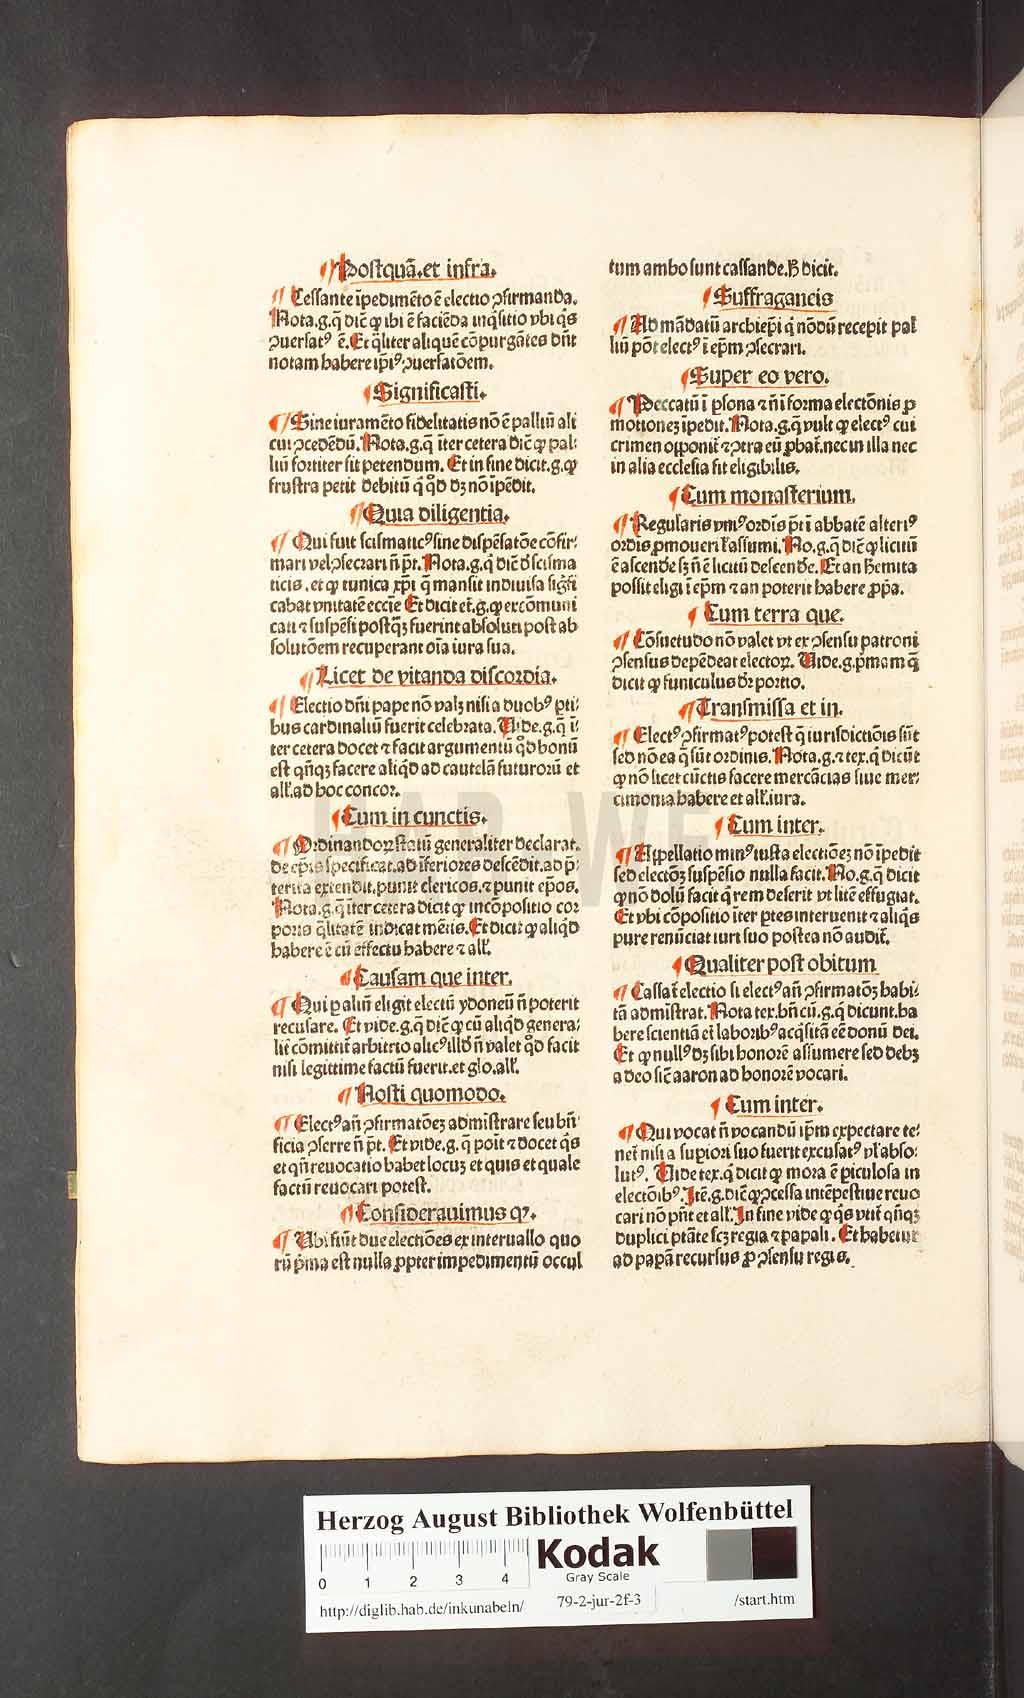 ¶ Postquā.et infra.
¶ Cessante īpedimēto ē electio ꝯfirmanda.
Nota.g.q̄ dic̄ ꝙ ibi ē faciēda inq̄sitio vbi q̄s
ꝯuersatꝰ ē. Et q̄liter aliquē cōpurgātes dn̄t
notam habere ip̄iꝰ ꝯuersatōem.
¶ Significasti.
¶ Sine iuramēto fidelitatis nō ē palliū ali
cui ꝯcedēdū. Nota.g.q̄ īter cetera dic̄ ꝙ pal-
liū fortiter sit petendum. Et in fine dicit.g.ꝙ
frustra petit debitū q̄ qd̄ dꝫ nō īpēdit.
¶ Quia diligentia.
¶ Qui fuit scismaticꝰ sine dispēsatōe cōfir-
mari vel ꝯsecrari n̄ pt̄. Nota.g.q̄ dic̄ d̄ scisma
ticis.et ꝙ tunica xp̄i q̄ mansit indiuisa siḡfi
cabat vnitatē eccīe Et dicit et̄.g.ꝙ excōmuni
cati ⁊ suspēsi postꝙꝫ fuerint absoluti post ab
solutōem recuperant oīa iura sua.
¶ Licet de vitanda discordia.
¶ Electio dn̄i pape nō valꝫ nisi a duobꝰ ꝑti-
bus cardinaliū fuerit celebrata. Vide.g.q̄ ī-
ter cetera docet ⁊ facit argumentū qd̄ bonū
est qn̄qꝫ facere aliqd̄ ad cautelā futurorū et
all̄.ad hoc concor.
¶ Cum in cunctis.
¶ Ordinandoꝝ statū generaliter declarat.
de ep̄is specificat.ad īferiores descēdit.ad p̄-
terita extendit.punit clericos.⁊ punit ep̄os.
Nota.g.q̄ iter cetera dicit ꝙ incōpositio cor
poris q̄litatē indicat mētis. Et dicit ꝙ aliqd̄
habere ē cū effectu habere ⁊ all̄.
¶ Causam que inter.
¶ Qui ꝑ aliū eligit electū ydoneū n̄ poterit
recusare. Et vide.g.q̄ dic̄ ꝙ cū aliqd̄ genera-
lit̄ cōmittit̄ arbitrio alicꝰ illd̄ n̄ valet qd̄ facit
nisi legittime factū fuerit.et glo.all̄.
¶ Nosti quomodo.
¶ Electꝰ an̄ ꝯfirmatōeꝫ admīstrare seu bn̄-
ficia ꝯferre n̄ pt̄. Et vide.g.q̄ poīt ⁊ docet q̄s
et qn̄ reuocatio habet locuꝫ et quis et quale
factū reuocari potest.
¶ Considerauimus ꝙ.
¶ Vbi fiūt due electiōes ex interuallo quo
rū p̄ma est nulla ꝓpter impedimentū occul
tum ambo sunt cassande. H̄ dicit.
¶ Suffraganeis
¶ Ad mādatū archiep̄i q̄ nōdū recepit pal
liū pōt electꝰ ī ep̄m ꝯsecrari.
¶ Super eo vero.
¶ Peccatū ī ꝑsona ⁊ n̄ ī forma electōnis ꝓ
motioneꝫ īpedit. Nota.g.q̄ vult ꝙ electꝰ cui
crimen opponit̄ ⁊ ꝯtra eū ꝓbat̄.nec in illa nec
in alia ecclesia sit eligibilis.
¶ Cum monasterium.
¶ Regularis vniꝰ ordis p̄t ī abbatē alteriꝰ
ordis ꝓmoueri l̄ assumi. No.g.q̄ dic̄ ꝙ licitū
ē ascende sꝫ n̄ ē licitū descende. Et an h̄emita
possit eligi ī ep̄m ⁊ an poterit habere ꝓp̄a.
¶ Cum terra que.
¶ Cōsuetudo nō valet vt ex ꝯsensu patroni
ꝯsensus depēdeat electoꝝ. Vide.g.p̄mam q̄
dicit ꝙ funiculus dr̄ portio.
¶ Transmissa et in.
¶ Electꝰ ꝯfirmatꝰ potest q̄ iurisdictiōis sūt
sed nō ea q̄ sūt ordinis. Nota.g.⁊ tex.q̄ dicūt
ꝙ nō licet cūctis facere mercācias siue mer-
cimonia habere et all̄.iura.
¶ Cum inter.
¶ Appellatio minꝰ iusta electiōeꝫ nō īpedit
sed electōꝫ suspēsio nulla facit. No.g.q̄ dicit
ꝙ nō dolū facit q̄ rem deserit vt litē effugiat.
Et vbi cōpositio īter ꝑtes interuenit ⁊ aliq̄s
pure renūciat iuri suo postea nō audit̄.
¶ Qualiter post obitum
¶ Cassat̄ electio si electꝰ an̄ ꝯfirmatōꝫ habi-
tā admīstrat. Nota tex.bn̄ cū.g.q̄ dicunt.ha
bere scientiā ei laboribꝰ acq̄sitā eē donū dei.
Et ꝙ nullꝰ dꝫ sibi honorē assumere sed debꝫ
a deo sic̄ aaron ad honorē vocari.
¶ Cum inter.
¶ Qui vocat n̄ vocandū ip̄m expectare te-
net̄ nisi a supiori suo fuerit excusatꝰ vl̄ abso-
lutꝰ. Vide tex.q̄ dicit ꝙ mora ē ꝑiculosa in
electōibꝰ. Itē.g.dic̄ ꝙ ꝓcessa intēpestiue reuo
cari nō pn̄t et all̄. In fine vide ꝙ q̄s vtit̄ qn̄qꝫ
duplici ptāte scꝫ regia ⁊ papali. Et habetur
ad papā recursus ꝓ ꝯsensu regis.
HAB WF
Herzog August Bibliothek Wolfenbüttel
0 1 2 3 4
Kodak
Gray Scale
http://diglib.hab.de/inkunabeln/ 79-2-jur-2f-3 /start.htm